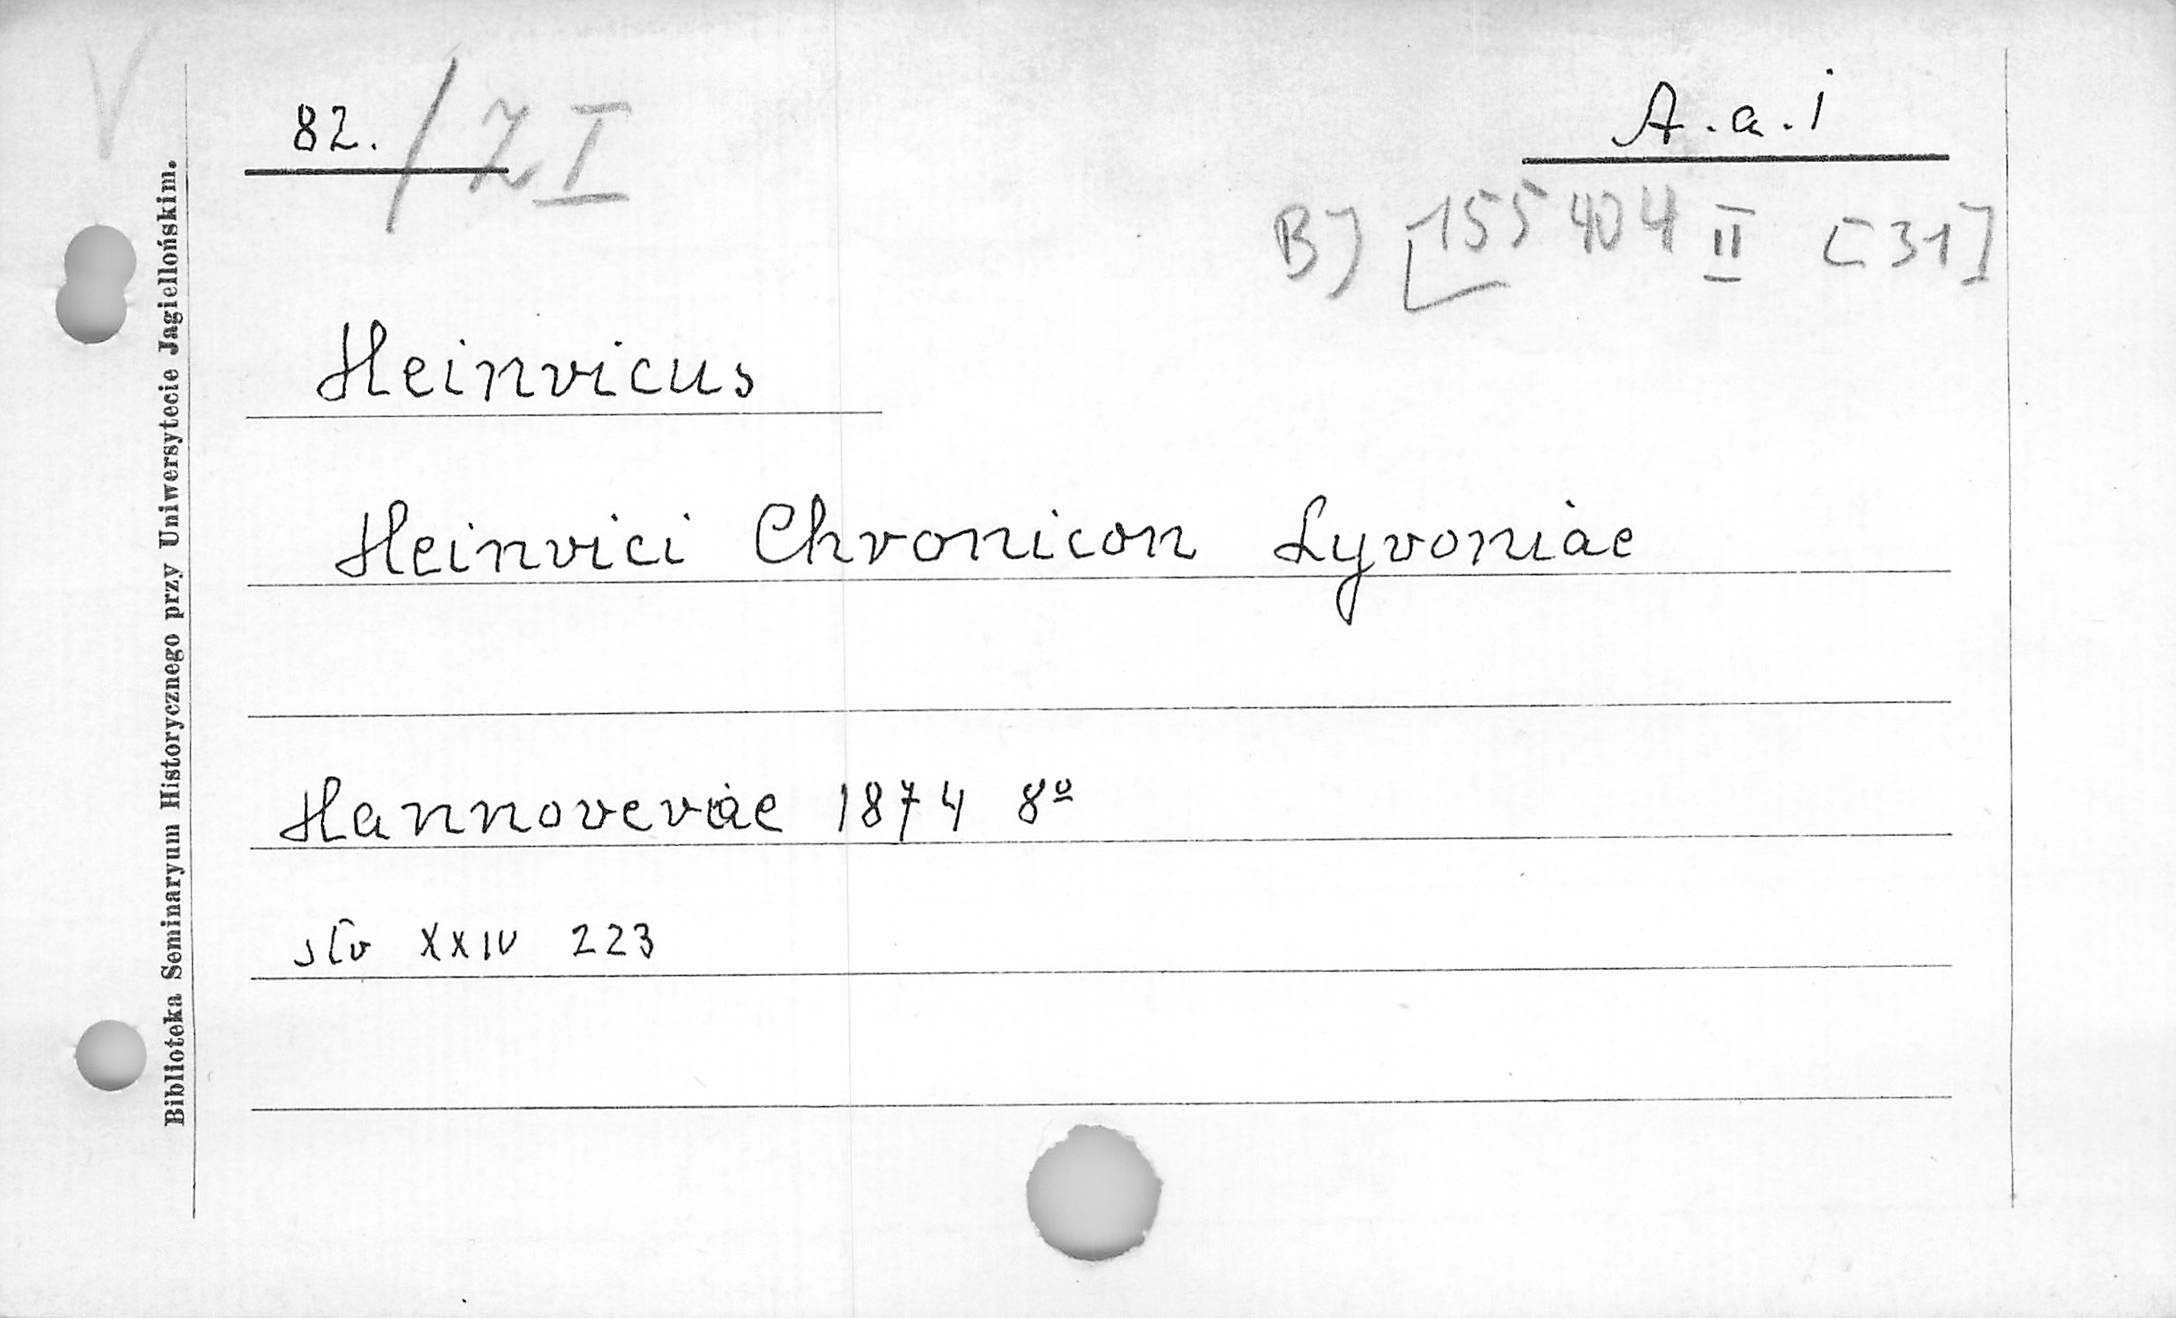 82. / Z I
A.a.i
B) [155 404 II [31]
Heinricus
Heinrici Chronicon Lyvoniae
Hannoverae 1874 8º
str XXIV 223
Biblioteka Seminaryum Historycznego przy Uniwersytecie Jagiellońskim.